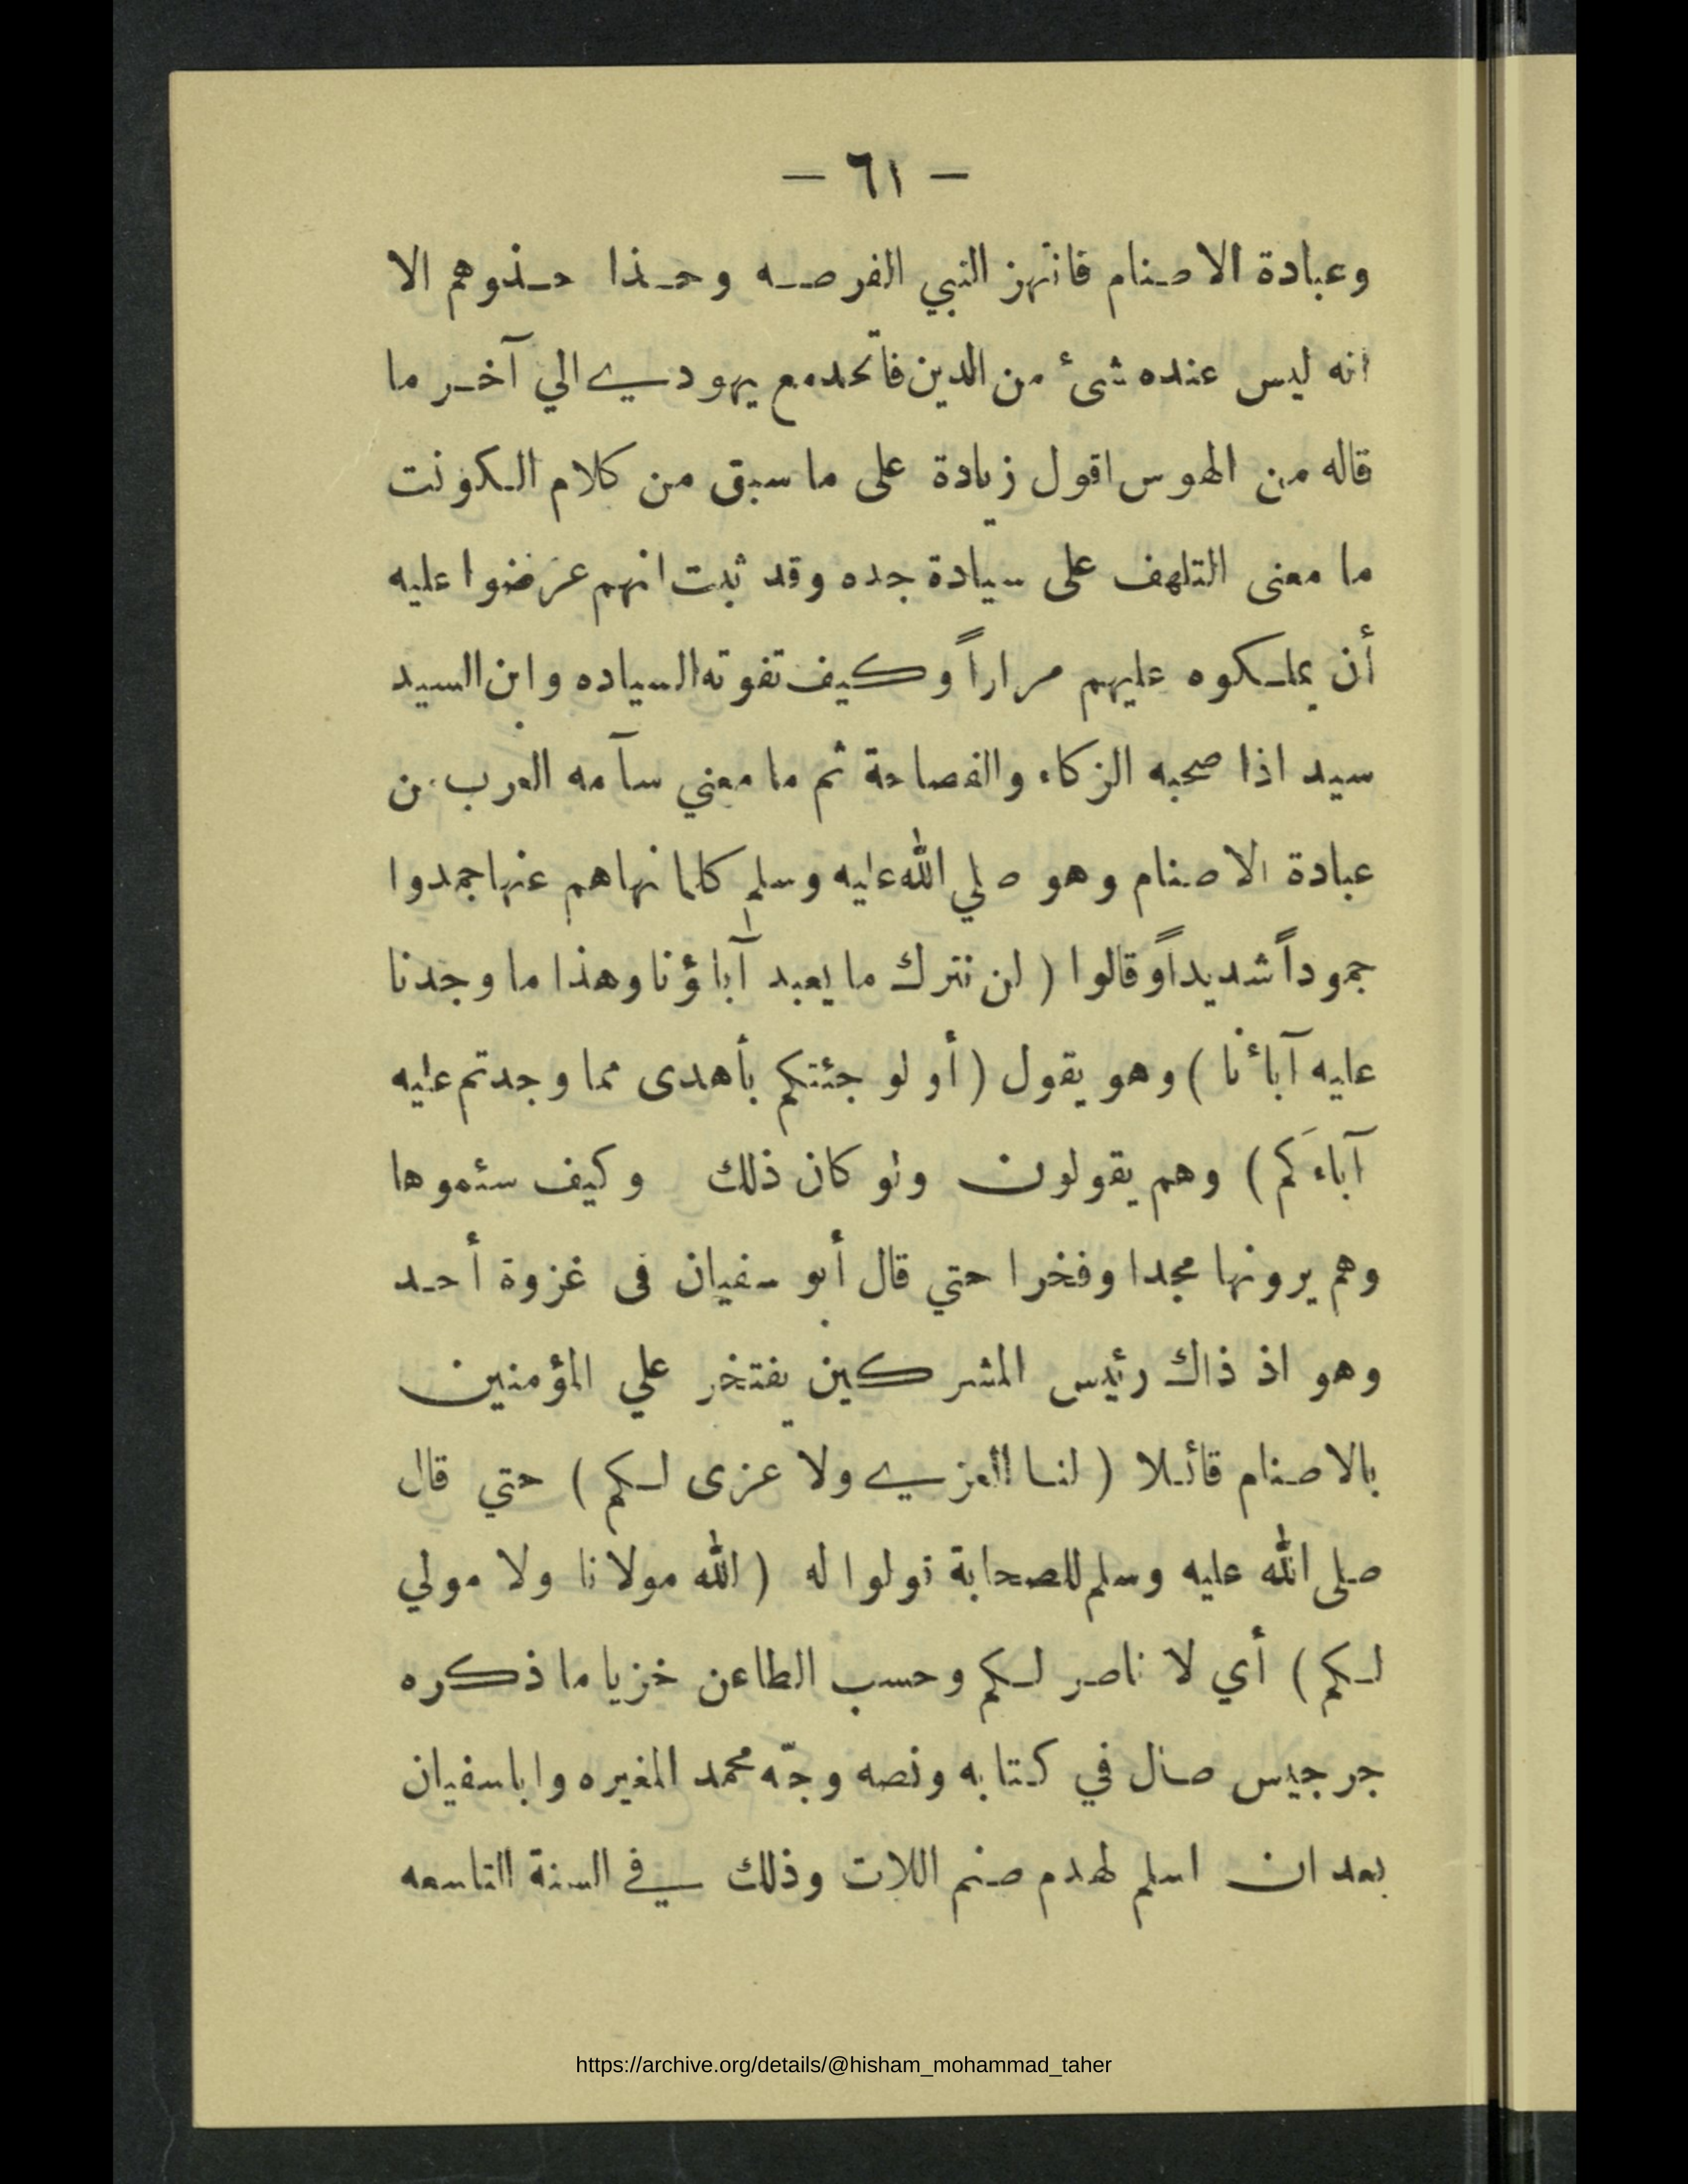 — ٦١ —
وعبادة الاصنام فانتهز النبي الفرصه وحذا حذوهم الا
انه ليس عنده شئ من الدين فاتحد مع يهودي الي آخر ما
قاله من الهوس اقول زيادة على ما سبق من كلام الكونت
ما معنى التلهف على سيادة جده وقد ثبت انهم عرضوا عليه
أن يملكوه عليهم مراراً وكيف تفوته السياده وابن السيد
سيد اذا صحبه الزكاء والفصاحة ثم ما معني سآمه العرب من
عبادة الاصنام وهو صلي الله عليه وسلم كلما نهاهم عنها جمدوا
جموداً شديداً وقالوا ( لن نترك ما يعبد آباؤنا وهذا ما وجدنا
عليه آبائنا ) وهو يقول ( أو لو جئتكم بأهدى مما وجدتم عليه
آباءَكم ) وهم يقولون ولو كان ذلك وكيف سئموها
وهم يرونها مجدا وفخرا حتي قال أبو سفيان فى غزوة أحد
وهو اذ ذاك رئيس المشركين يفتخر علي المؤمنين
بالاصنام قائلا ( لنا العزي ولا عزى لكم ) حتي قال
صلى الله عليه وسلم للصحابة قولوا له ( الله مولانا ولا مولي
لكم ) أي لا ناصر لكم وحسب الطاعن خزيا ما ذكره
جرجيس صال في كتابه ونصه وجّه محمد المغيره وابا سفيان
بعد ان اسلم لهدم صنم اللات وذلك في السنة التاسعه
https://archive.org/details/@hisham_mohammad_taher